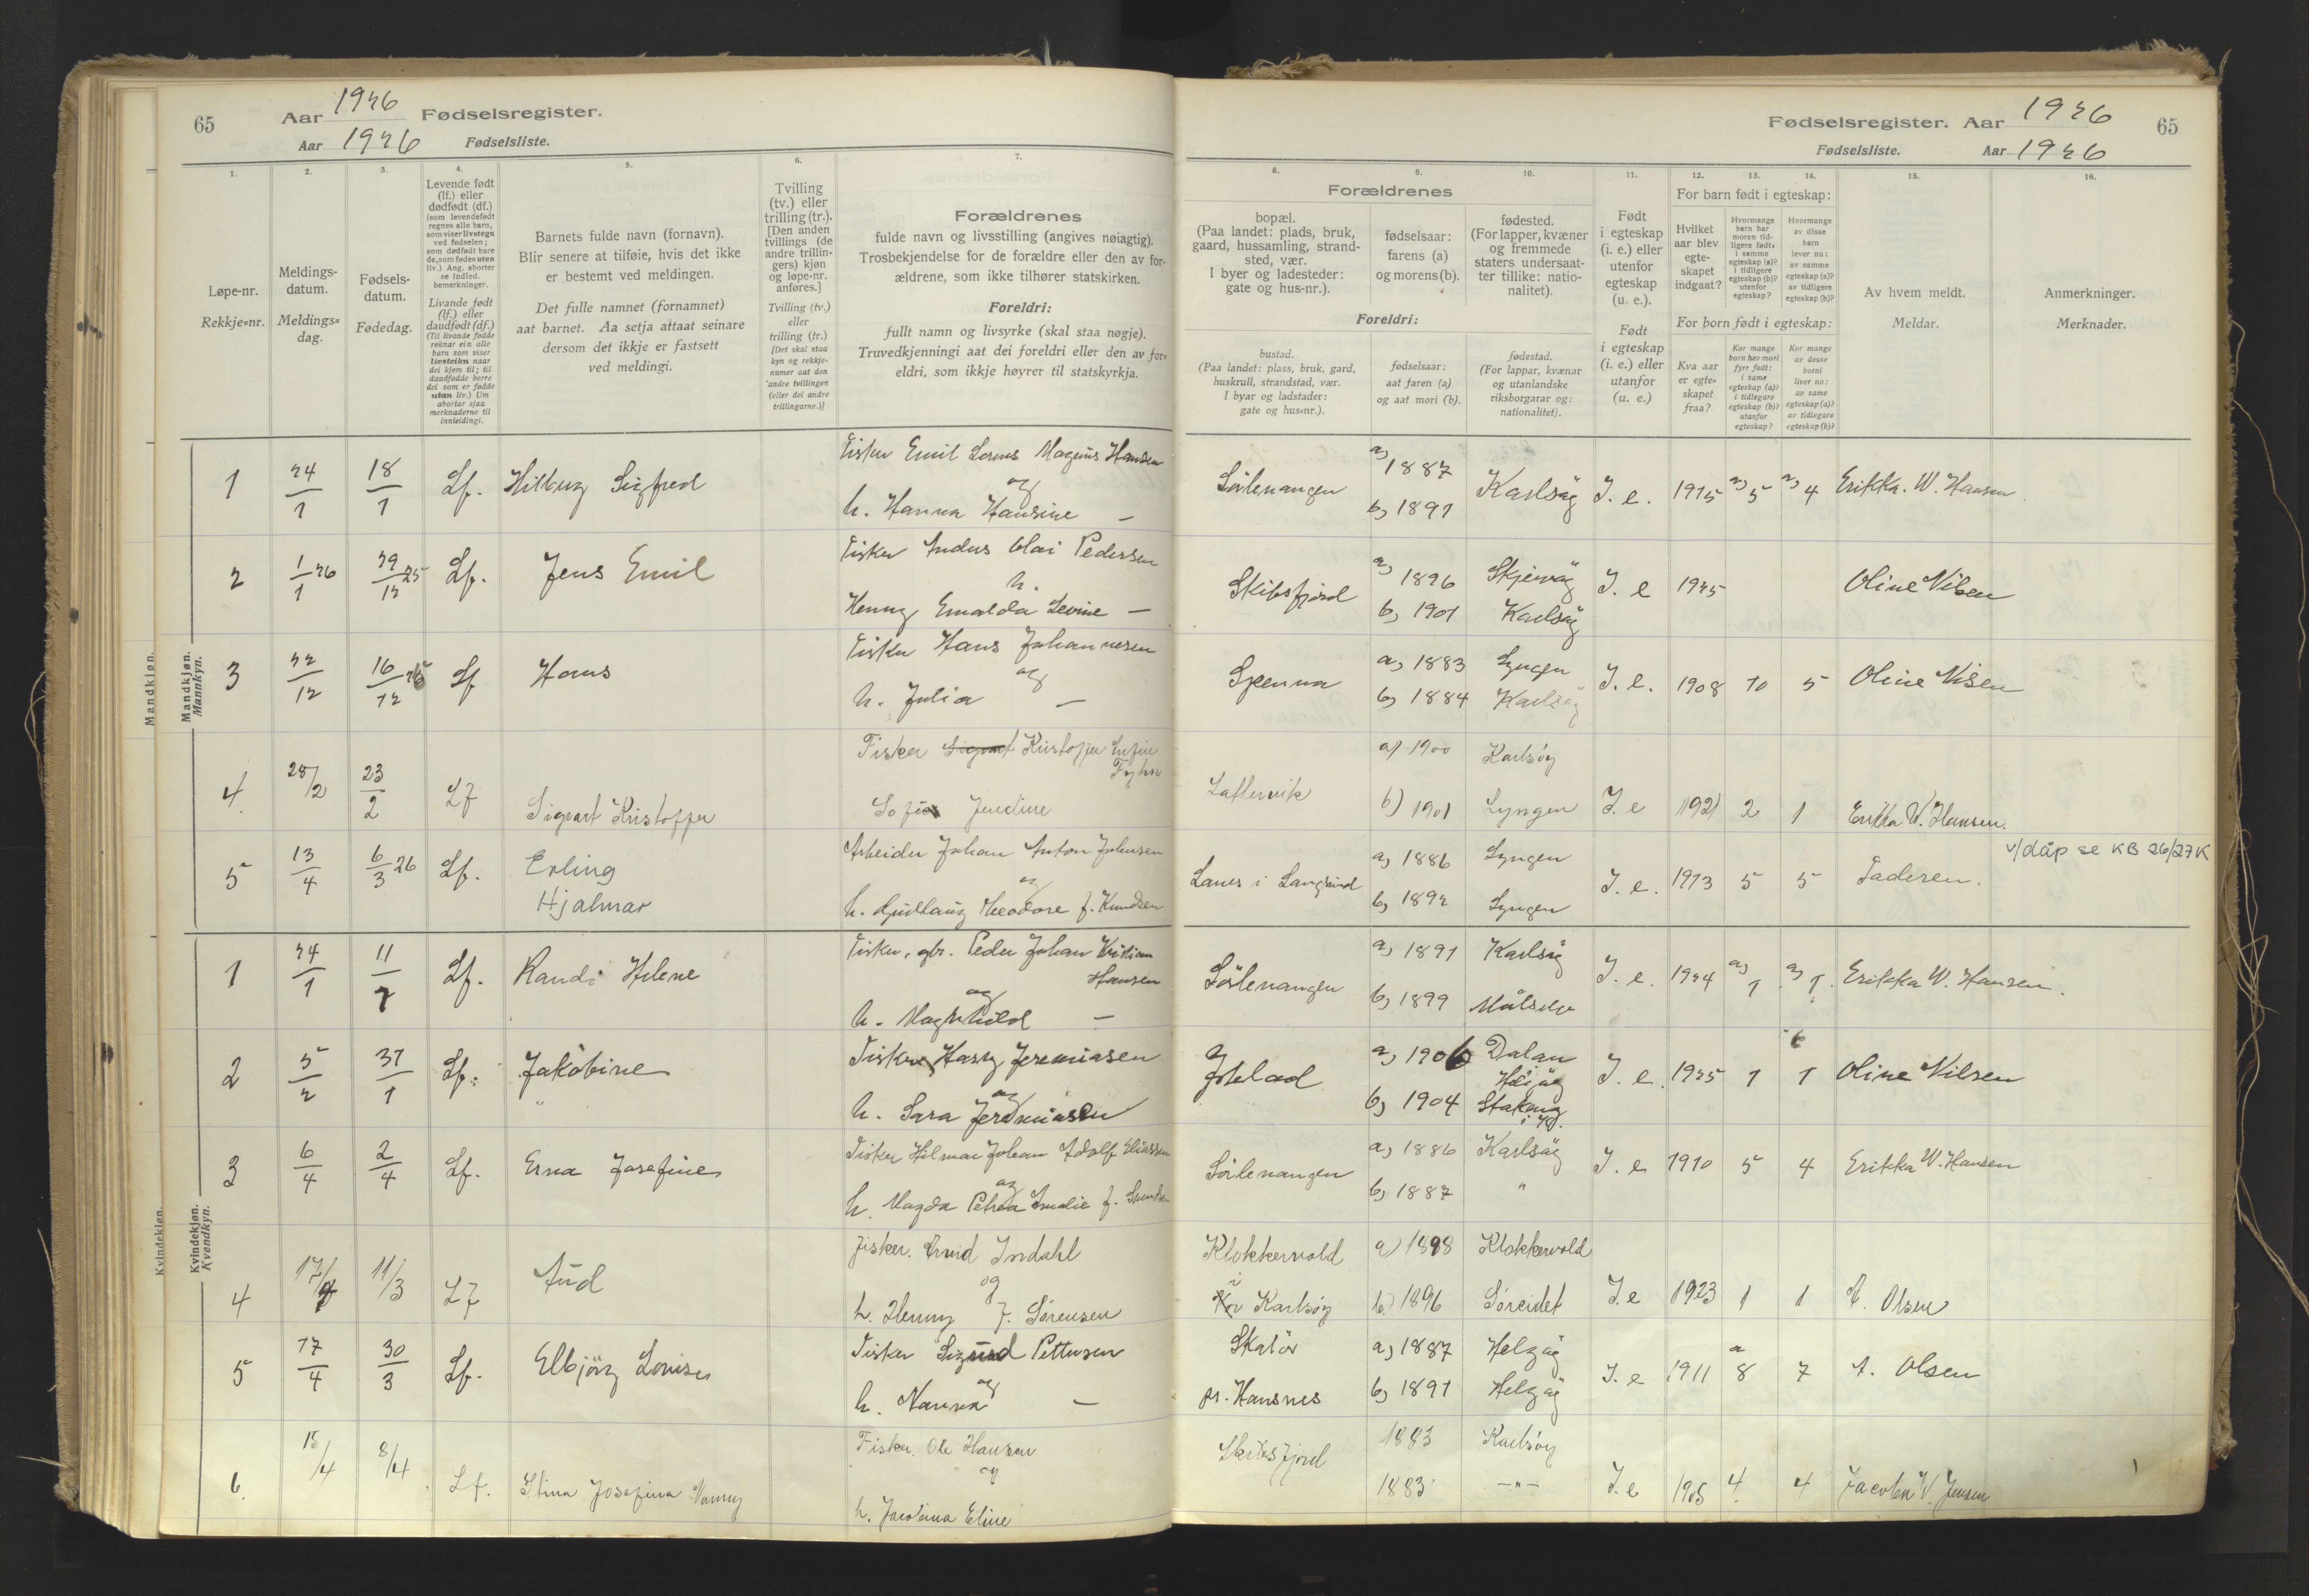 65
Aar 1926 Fødselsregister.
Aar 1926 Fødselsliste.
1. 2. 3. 4. 5. 6. 7.
Løpe-nr.
Rekkje=nr.
Meldings-
datum.
Meldings=
dag.
Fødsels-
datum.
Fødedag.
Levende født
(lf.) eller
dødfødt (df.)
(som levendefødt
regnes alle barn,
som viser livstegn
ved fødselen;
som dødfødt bare
de, som fødes uten
liv.) Ang. aborter
se indled.
bemerkninger.
Livande født
(lf.) eller
daudfødt (df.)
(Til livande fødde
reknar ein alle
barn som viser
livsteikn naar
dei kjem til; til
daudfødde berre
dei som er fødde
utan liv.) Um
abortar sjaa
merknaderne til
innleidingi.
Barnets fulde navn (fornavn).
Blir senere at tilføie, hvis det ikke
er bestemt ved meldingen.
Det fulle namnet (fornamnet)
aat barnet. Aa setja attaat seinare
dersom det ikkje er fastsett
ved meldingi.
Tvilling
(tv.) eller
trilling (tr.).
[Den anden
tvillings (de
andre trillin-
gers) kjøn
og løpe-nr.
anføres.]
Tvilling (tv.)
eller
trilling (tr.)
[Det skal staa
kyn og rekkje-
numer aat den
andre tvillingen
(eller dei andre
trillingarne.)]
Forældrenes
fulde navn og livsstilling (angives nøiagtig).
Trosbekjendelse for de forældre eller den av for-
ældrene, som ikke tilhører statskirken.
Foreldri:
fullt namn og livsyrke (skal staa nøgje).
Truvedkjenningi aat dei foreldri eller den av for=
eldri, som ikkje høyrer til statskyrkja.
Mandkjøn.
Mandkjøn.
Mannkyn.
1 24/1 18/1 Lf. Hilbug Sigfred
Fisker Emil Lorens Magnus Hansen
og
h. Hanna Hansine —
2 1/1 26 29/12 25 Lf. Jens Emil
Fisker Anders Olai Pedersen
h.
Henny Emalda Levine —
3 22/12 16/12 Lf Hans
Fisker Hans Johannesen
og
h. Julia —
4. 28/2 23/2 Lf Sigvart Kristoffer
Fisker Sigvart Kristoffer
Fyhn
Sofie Jendine
5 13/4 6/3 26 Lf. Erling
Hjalmar
Arbeider Johan Anton Johnsen
og
h. Gudlaug Theodore f. Knudsen
Kvindekjøn.
Kvindekjøn.
Kvendkyn.
1 24/1 11/1 Lf. Randi Helene
Fisker, gbr. Peder Johan Kristian
Hansen
og
h. Magnhild —
2 5/2 31/1 Lf. Jakobine
Fisker Harry Jeremiasen
og
h. Sara Jeremiasen
3 6/4 2/4 Lf. Erna Josefine
Fisker Hilmar Johan Adolf Eliassen
og
h. Magda Petrea Amalie f.
4 11/3 Lf Aud
Fisker. Arvid Indahl
og
h. Henny f. Sørensen
5 17/4 30/3 Lf. Elbjørg Louise
Fisker Sigurd Pettersen
og
h. Nanna —
6. 15/4 8/4 Lf. Stina Josefina Nanny
Fisker. Ole Hansen
og
h. Jacobina Eline
Fødselsregister. Aar 1926 65
Fødselsliste. Aar 1926
8. 9. 10. 11. 12. 13. 14. 15. 16.
Forældrenes
bopæl.
(Paa landet: plads, bruk,
gaard, hussamling, strand-
sted, vær.
I byer og ladesteder:
gate og hus-nr.).
fødselsaar:
farens (a)
og morens (b).
fødested.
(For lapper, kvæner
og fremmede
staters undersaat-
ter tillike: natio-
nalitet).
Foreldri:
bustad.
(Paa landet: plass, bruk, gard,
huskrull, strandstad, vær.
I byar og ladstader:
gate og hus=nr.).
fødselsaar:
aat faren (a)
og aat mori (b).
fødestad.
(For lappar, kvænar
og utanlandske
riksborgarar og:
nationalitet).
Født
i egteskap
(i. e.) eller
utenfor
egteskap
(u. e.).
Født
i egteskap
(i. e.) eller
utanfor
(u. e.)
For barn født i egteskap:
Hvilket
aar blev
egte-
skapet
indgaat?
Hvormange
barn har
moren tid-
ligere født:
i samme
egteskap (a)?
i tidligere
egteskap (b)?
utenfor
egteskap?
Hvormange
av disse
barn
lever nu:
av samme
egteskap (a)?
av tidligere
egteskap (b)?
For born født i egteskap:
Kva aar
er egte=
skapet
fraa?
Kor mange
born hev mori
fyrr født:
i same
egteskap (a)?
i tidlegare
egteskap (b)?
utanfor
egteskap?
Kor mange
av desse
borni
liver no:
av same
egteskap (a)?
av tidlegare
egteskap (b)?
Av hvem meldt.
Meldar.
Anmerkninger.
Merknader.
Sörlenangen a) 1887 Karlsøy J. e. 1915 a) 5 a) 4 Erikka. W. Hansen.
b) 1891
Skibsfjord a) 1896 Skjervøy J. e 1925 Oline Nilsen
b) 1901 Karlsøy
Spenna a) 1883 Lyngen J. e. 1908 10 5 Oline Nilsen
b) 1884 Karlsøy
a) 1900 Karlsøy
b) 1901 Lyngen J. e 1921 2 1 Erikka W. Hansen.
v/dåp se KB 26/27K
Lanes i Langsund a) 1886 Lyngen J. e. 1913 5 5 Faderen.
b) 1892 Lyngen
Sörlenangen a) 1891 Karlsøy J. e. 1924 a) 1 a) 1. Erikka W. Hansen.
b) 1899 Målselv
a) 1906 J. e. 1925 1 1 Oline Nilsen
b) 1904
Sörlenangen a) 1886 Karlsøy J. e 1910 5 4 Erikka W. Hansen
b) 1887 "
Klokkervold a) 1898 Klokkervold
i
Karlsøy b) 1896 Søreidet J. e 1923 1 1 A. Olsen
Skatör a) 1887 Helgøy
pr. Hansnes b) 1891 Helgøy J. e 1911 a 8 7 A. Olsen
Skibsfjord 1883 Karlsøy
1883 —"— J. e 1905 4. 4 Jacobn W. Jensen